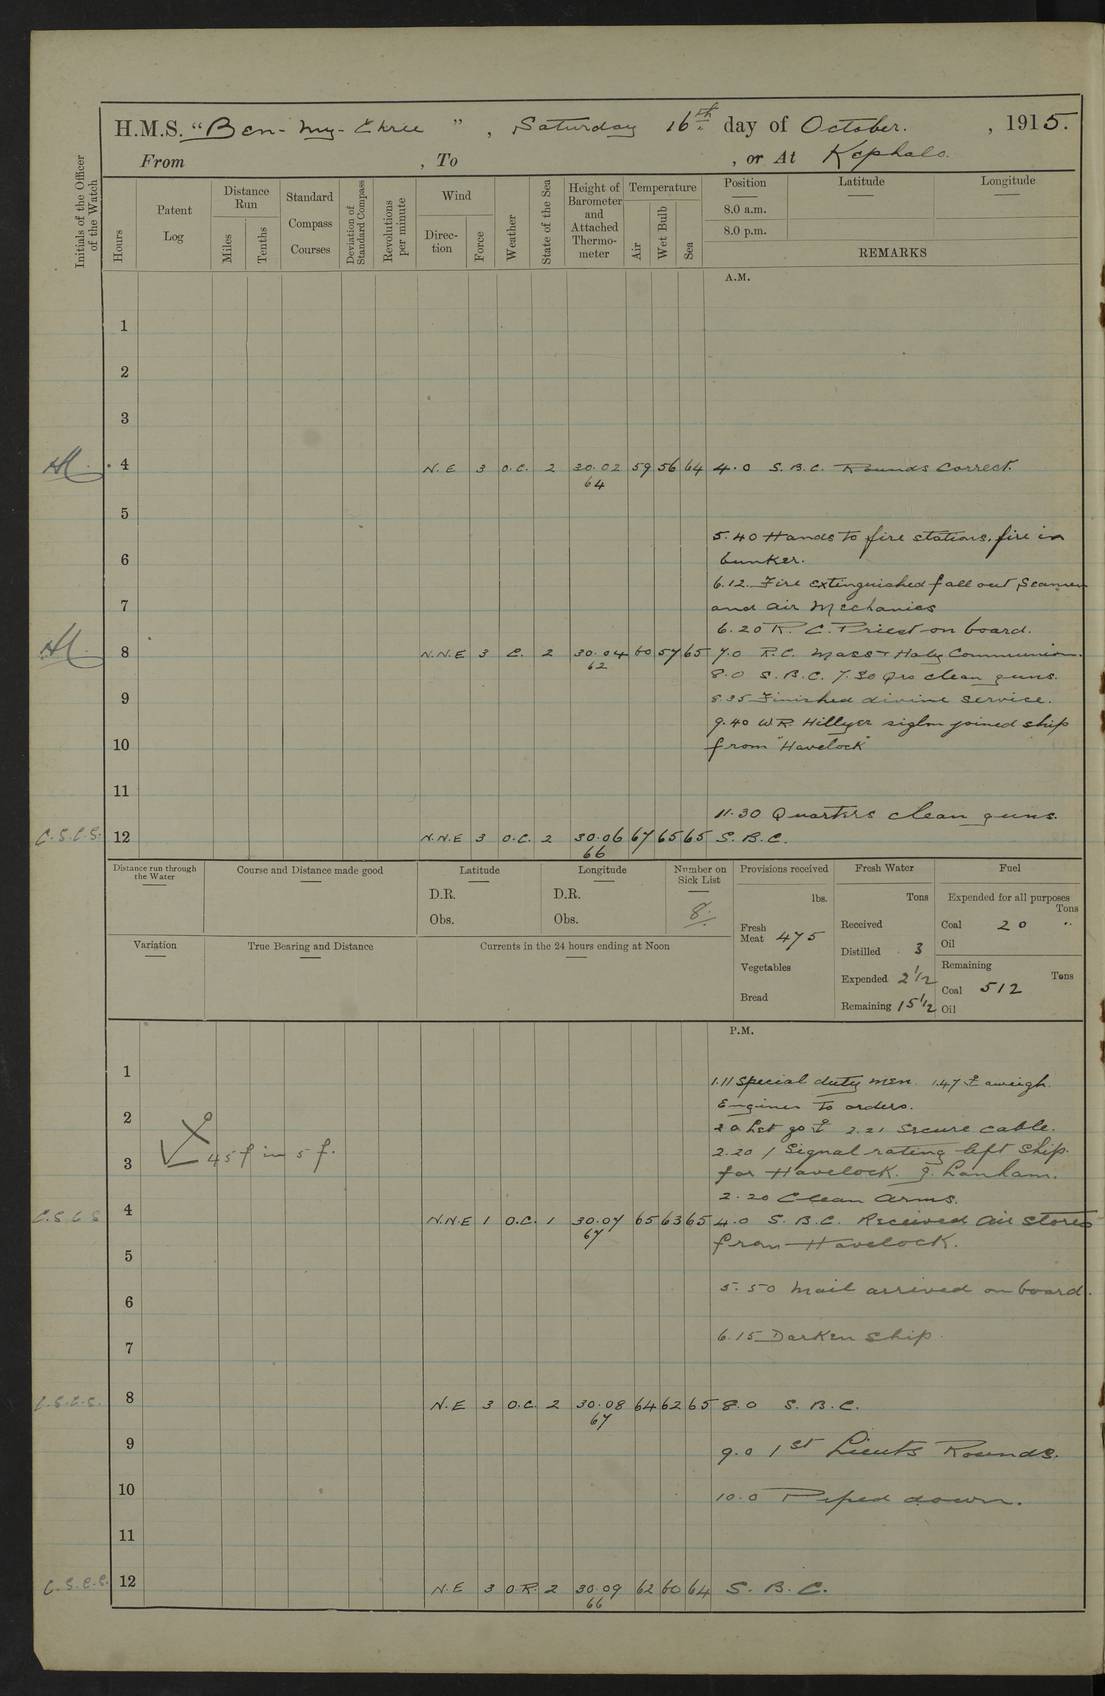 H.M.S. "Ben-my-Chree", Saturday 16th day of October. , 1915.
From , To , or At Kephalo.
Initials of the Officer of the Watch
Hours
Patent Log
Distance Run
Miles
Tenths
Standard Compass Courses
Deviation of Standard Compass
Revolutions per minute
Wind
Direction
Force
Weather
State of the Sea
Height of Barometer and Attached Thermometer
Temperature
Air
Wet Bulb
Sea
Position
Latitude
Longitude
8.0 a.m.
8.0 p.m.
REMARKS
A.M.
1
2
3
4 N.E 3 O.C. 2 30.02 59 56 64 4.0 S.B.C. Rounds Correct.
64
5
5.40 Hands to fire stations, fire in
6 bunker.
6.12. Fire extinguished fall out, Seamen
7 and Air Mechanics
6.20 R. C. Priest on board.
8 N.N.E 3 C. 2 30.04 60 57 65 7.0 R.C. Mass & Holy Communion.
62
8.0 S.B.C. 7.30 Qrs clean guns.
9 8.35 Finished divine service.
9.40 W R Hillyer siglm joined ship
10 from "Havelock"
11
11.30 Quarters clean guns.
C.S.C.S. 12 N.N.E 3 O.C. 2 30.06 67 65 65 S.B.C.
66
Distance run through the Water
Course and Distance made good
Latitude
D.R.
Obs.
Longitude
D.R.
Obs.
Number on Sick List
8.
Provisions received
lbs.
Fresh Meat 475
Vegetables
Bread
Fresh Water
Tons
Received
Distilled 3
Expended 2 1/2
Remaining 15 1/2
Fuel
Expended for all purposes
Tons
Coal 20 "
Oil
Remaining
Tons
Coal 512
Oil
Variation
True Bearing and Distance
Currents in the 24 hours ending at Noon
P.M.
1 1.11 Special duty men. 1.47 ⚓ aweigh.
Engines to orders.
2 2.0 Let go ⚓ 2.21 Secure cable.
45 f in 5 f. 2.20 1 Signal rating left ship
3 for Havelock. J. Lanham.
2.20 Clean Arms.
C.S.C.S 4 N.N.E 1 O.C. 1 30.07 65 63 65 4.0 S.B.C. Received Air Stores
67
from Havelock.
5
5.50 Mail arrived on board.
6
6.15 Darken ship.
7
C.S.C.S. 8 N.E 3 O.C. 2 30.08 64 62 65 8.0 S.B.C.
67
9 9.0 1st Lieuts Rounds.
10 10.0 Piped down.
11
C.S.C.S. 12 N.E 3 O.R. 2 30.09 62 60 64 S.B.C.
66